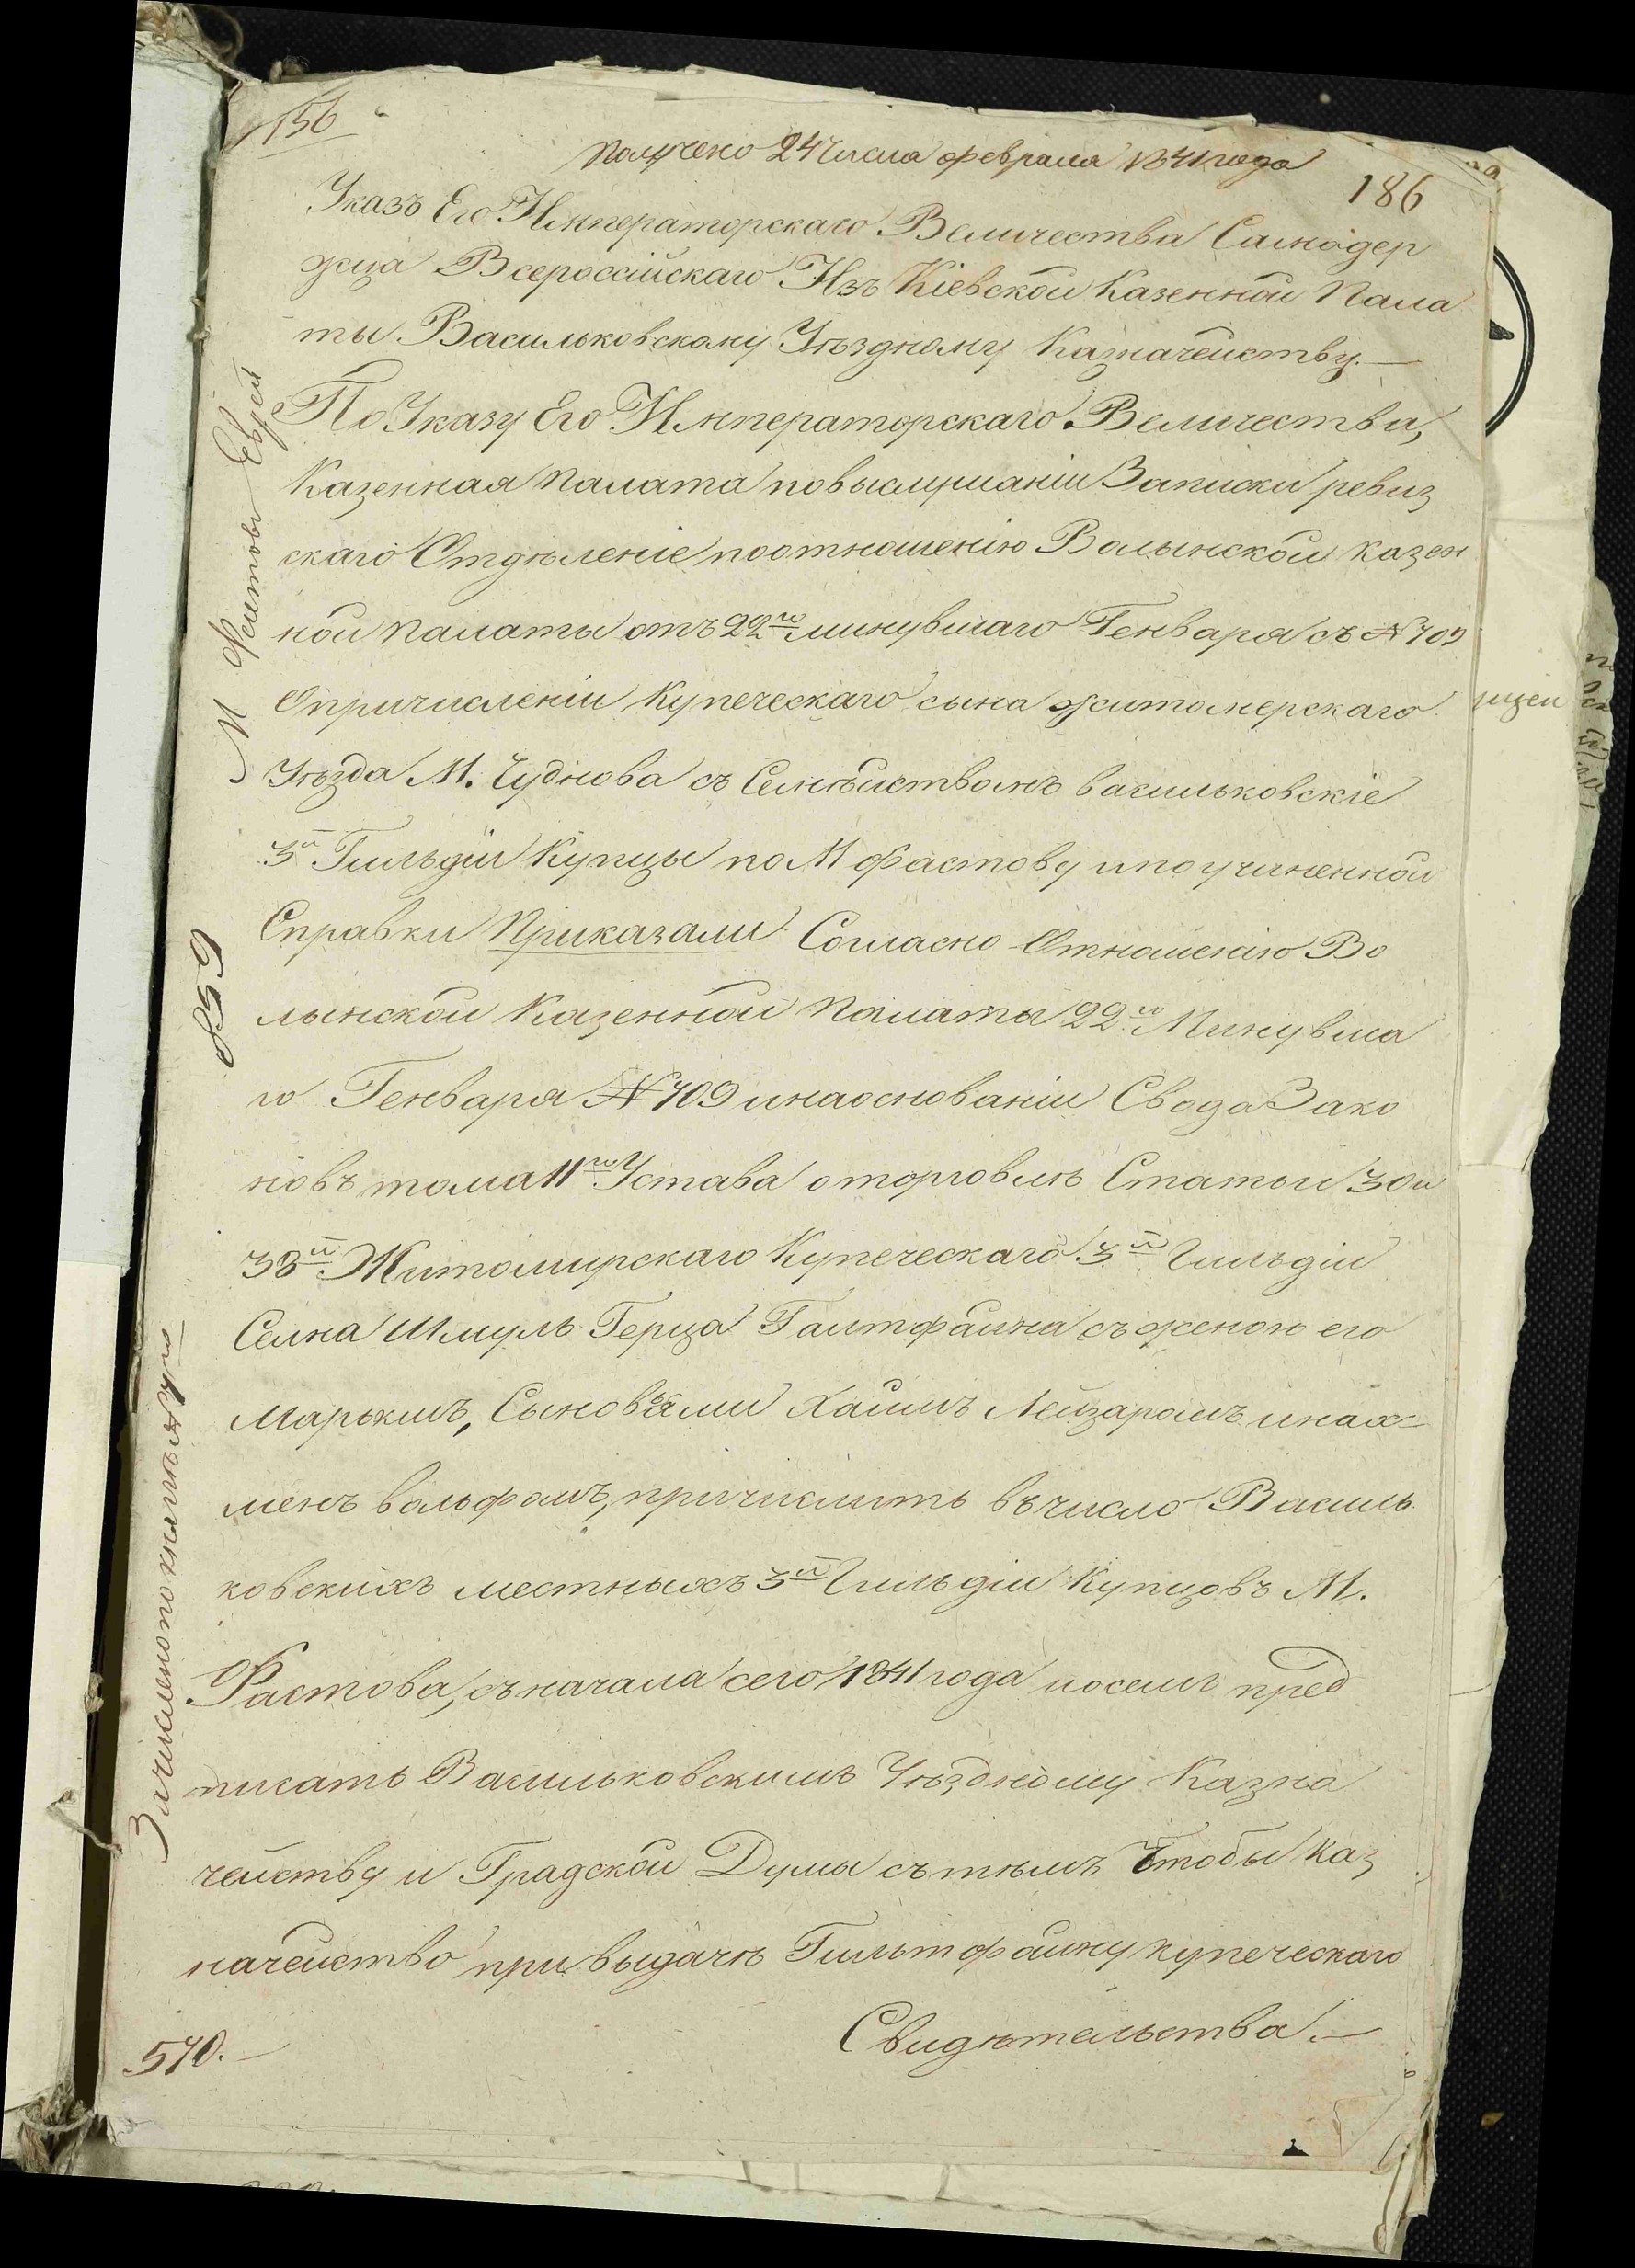 156
Получено 24 числа февраля 1841 года
186
Указъ Его Императорскаго Величества Самодер
жца Всероссійскаго Изъ Кіевской Казенной Пала
ты Васильковскому Уѣздному Казначейству.—
По Указу Его Императорскаго Величества,
Казенная Палата по выслушаніи Записки ревиз
скаго Отдѣленіе по отношенію Волынской Казен
ной Палаты отъ 22го минувшаго Генваря съ № 709
О причисленіи Купеческаго сына житомерскаго
Уѣзда М. Чуднова съ Семѣйствомъ васильковскіе
3й Гильдіи Купцы по М Фастову и по учиненной
Справки Приказали Согласно Отношенію Во
лынской Казенной Палаты 22го Минувша
го Генваря № 709 и на основаніи Свода Зако
новъ тома 11го Устава о торговлѣ Статьи 30 и
33й Житомирскаго Купеческаго 3й Гильдіи
Сына Шмуль Герца Галтфайна съ женою его
Марькимъ, Сыновьями Хаимъ Лейзаромъ и нах-
менъ вольфомъ, причислить въ число Василь
ковскихъ местныхъ 3й Гильдіи Купцовъ М.
Фастова, съ начала сего 1841 года и о семъ пред
писать Васильковскимъ Уѣздному Казна
чейству и Градской Думы съ тѣмъ Чтобы Каз
начейство при выдачѣ Гильтфайну купеческаго
Свидѣтельства.—
570.—
М Фастовъ Еврей
859
Зачислено по книгѣ